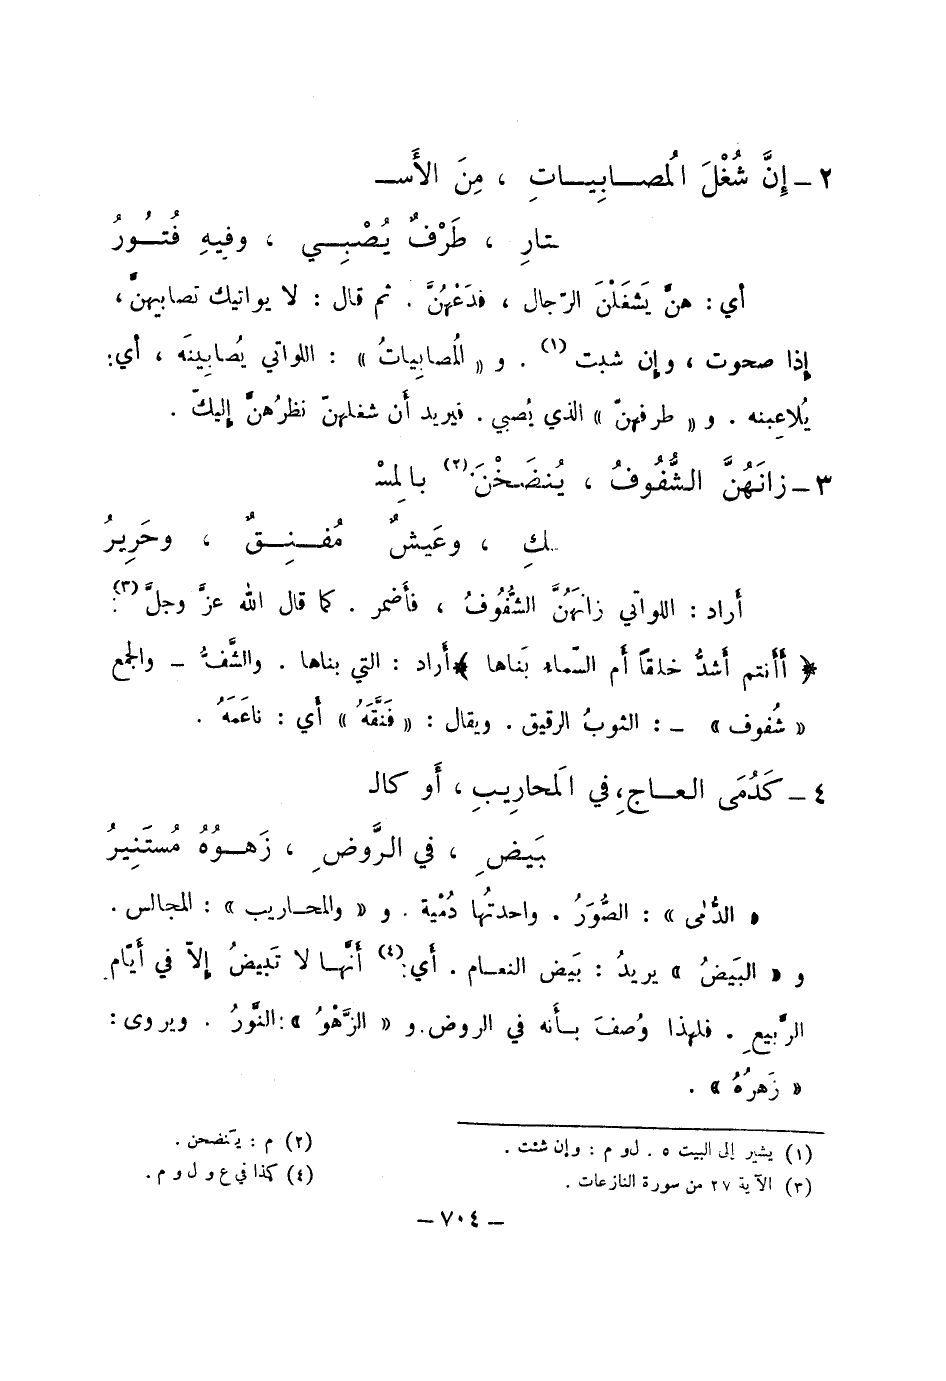 ٢ – إِنَّ شُغْلَ المُصـــابِيــاتِ ، مِنَ الأَســـ
ـتارِ ، طَرْفٌ يُصْبِـــي ، وفيهِ فُتُـــورُ
أي : هنَّ يَشغَلْنَ الرّجال ، فدَعْهُنَّ . ثم قال : لا يواتيك تصابيهنَّ ،
إذا صحوت ، وإن شبت (١) . و « المُصابِياتُ » : اللواتي يُصابِينَه ، أي:
يُلاعِبنه . و « طرفهنّ » الذي يُصبي . فيريد أَن شغلهنّ نظرُهنَّ إليكَ .
٣ – زانَهُنَّ الشُّفُوفُ ، يُنضَخْنَ (٢) بالمِسْـ
ـكِ ، وعَيشٌ مُفـــنِـــقٌ ، وحَرِيرُ
أراد : اللواتي زانَهُنَّ الشُّفُوفُ ، فأضمر . كما قال الله عزَّ وجلَّ (٣):
﴿ أأنتم أشدُّ خلقاً أم السّماء بَناها ﴾ أراد : التي بناها . والشَّفُّ – والجمع
« شُفوف » – : الثوبُ الرقيق . ويقال : « فَنَّقَهُ » أي : ناعَمَهُ .
٤ – كَدُمَى العــاجِ، في المَحارِيبِ ، أو كالـ
ـبَيضِ ، في الرَّوضِ ، زَهــوُهُ مُستَنِيرُ
« الدُّمى » : الصُّوَرُ . واحدتُها دُمْية . و « والمحــاريب » : المجالس .
و « البَيضُ » يريدُ : بَيض النعــام . أي:(٤) أنَّهــا لا تَبيضُ إلاّ في أيّام
الرَّبيعِ . فلهذا وُصفَ بــأنه في الروض. و « الزَّهْوُ » : النَّورُ . ويروى :
« زَهرُهُ » .
(١) يشير إلى البيت ٥ . ل و م : وإن شئت .
(٢) م : يَنضحن .
(٣) الآية ٢٧ من سورة النازعات .
(٤) كذا في ع و ل و م .
– ٧٠٤ –